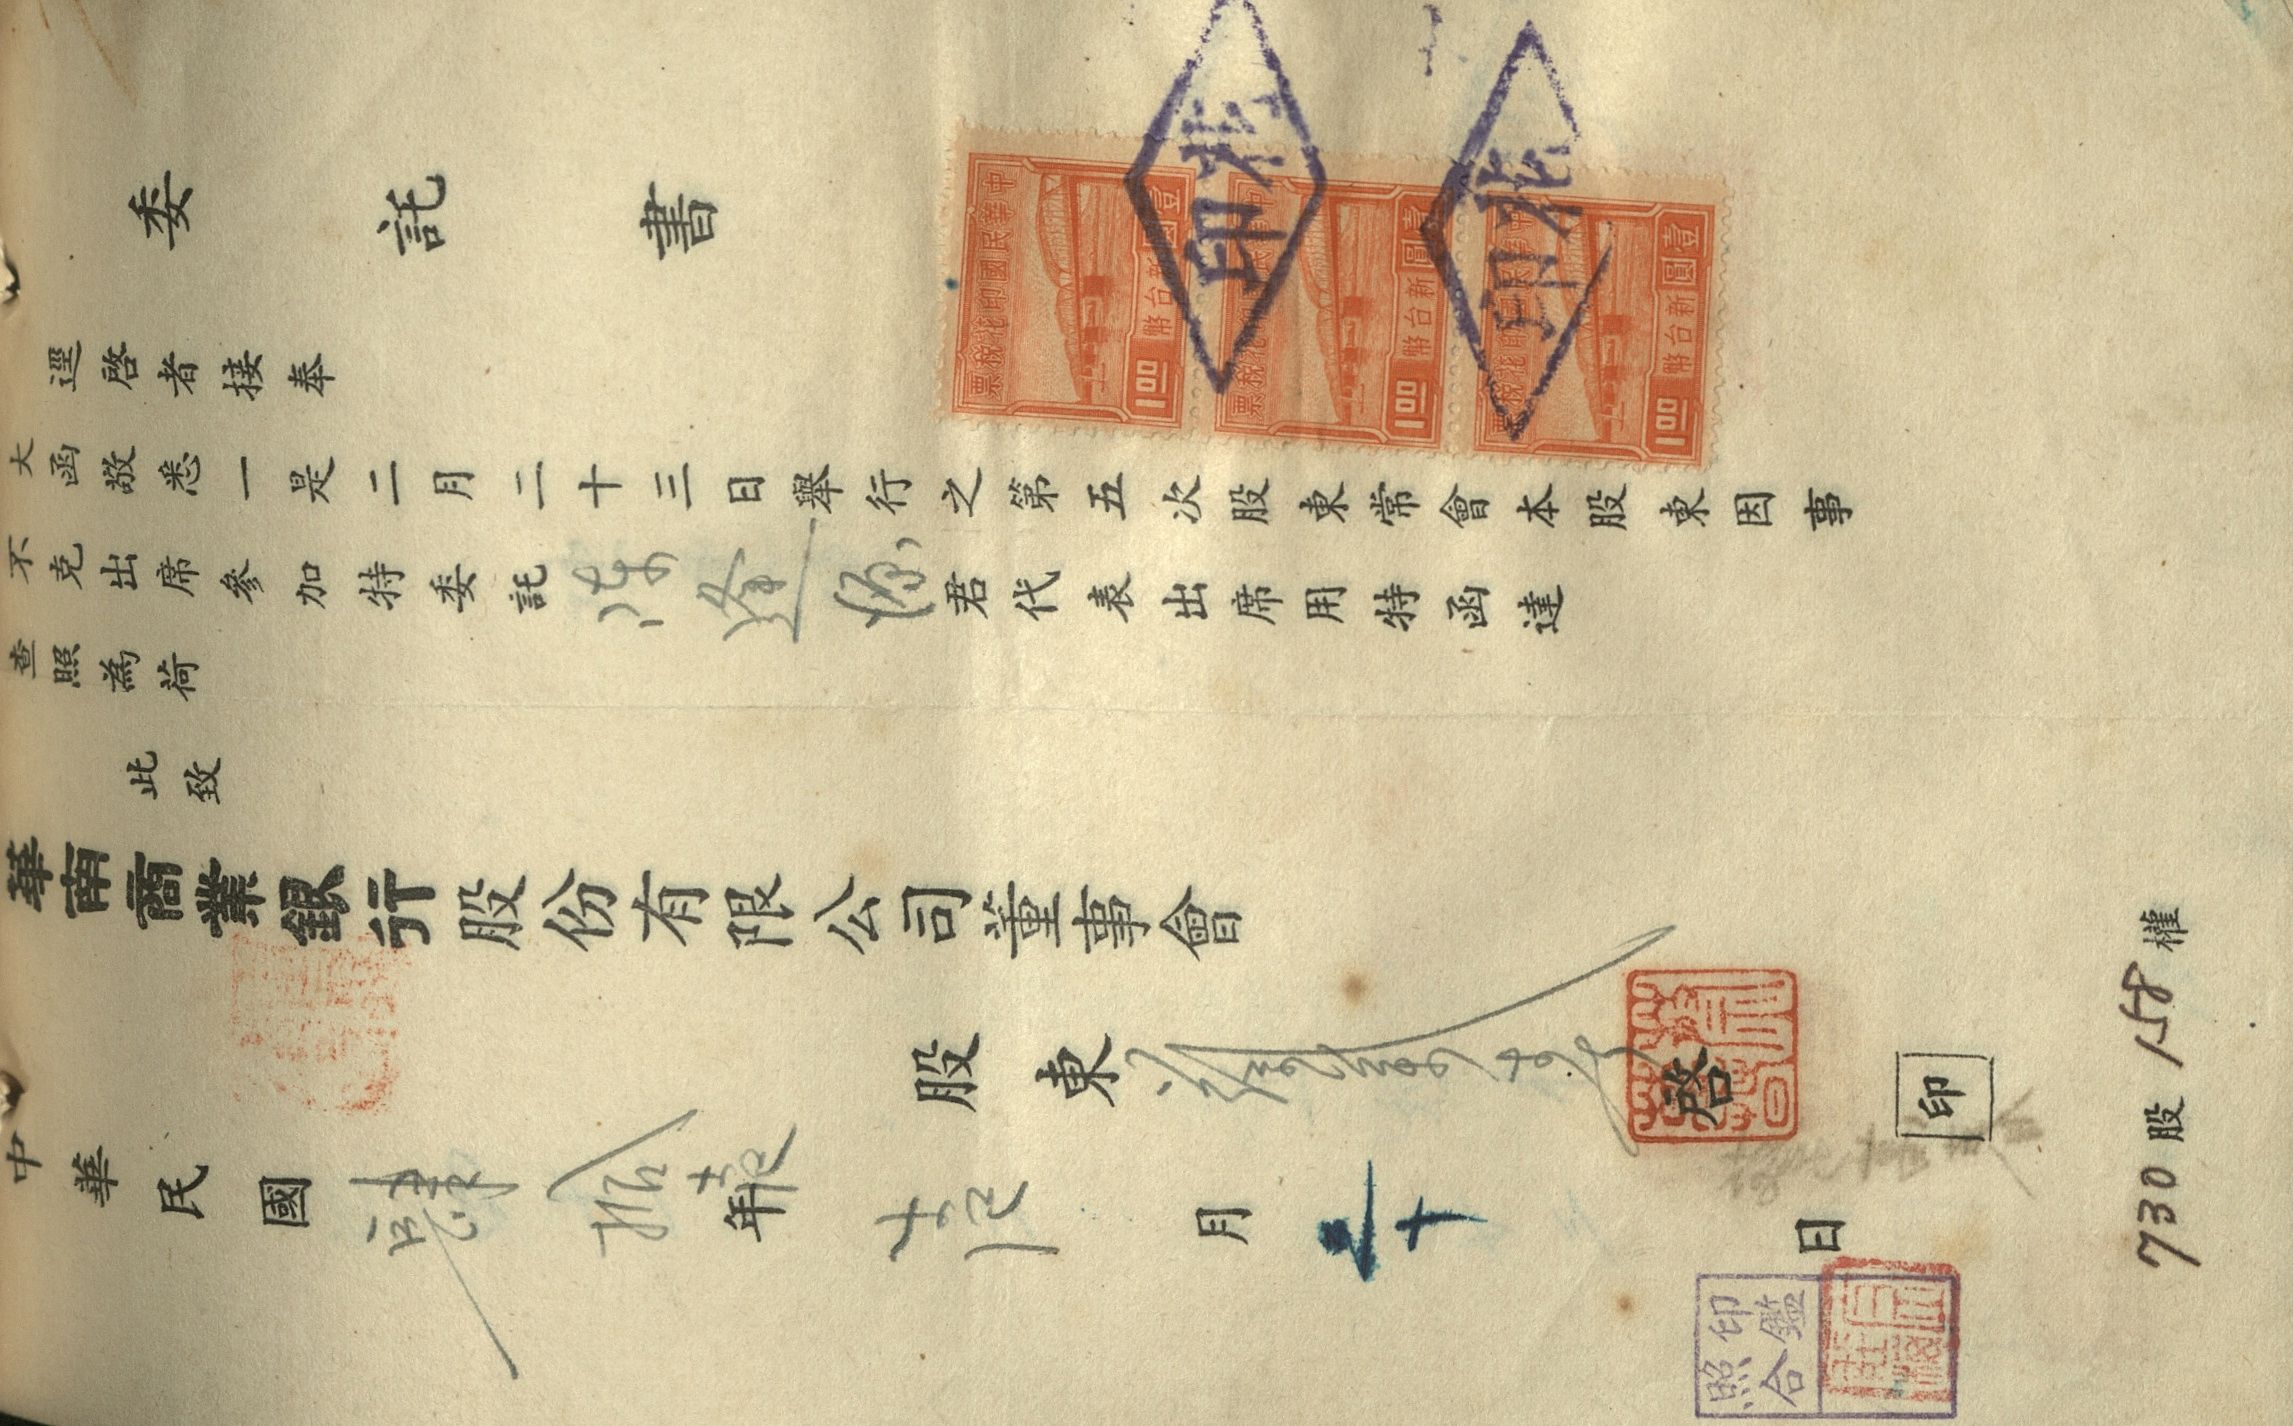 委託書
逕啓者接奉
大函敬悉一是二月二十三日舉行之第五次股東常會本股東因事
不克出席參加特委託陳逢源君代表出席用特函達
查照為荷
此致
華南商業銀行股份有限公司董事會
股東
啓
印
中華民國肆拾年月二十日
730股158權
印鑑
照合
中華民國印花稅票
壹圓
新台幣
1.00
中華民國印花稅票
壹圓
新台幣
1.00
中華民國印花稅票
壹圓
新台幣
1.00